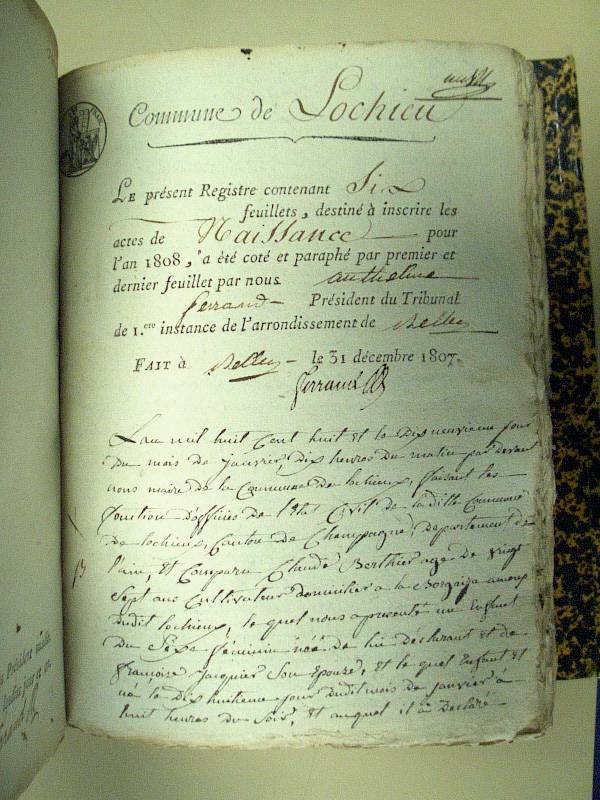 Commune de Lochieu
LE présent Registre contenant Six
feuillets, destiné à inscrire les
actes de Naissance pour
l'an 1808, a été coté et paraphé par premier et
dernier feuillet par nous anthelme
ferrand Président du Tribunal
de 1.ere instance de l'arrondissement de Belley
FAIT à Belley le 31 décembre 1807.
ferrand
L'an mil huit Cent huit et le Dix neuvieme jour
Du mois de janvier, Dix heures Du matin par devant
nous maire de la Commune de lochieux, faisant les
fonction D'officies de l'Etat Civil de la ditte Commune
De lochieux, Canton de Champagne, Departement de
l'ain, Et Comparu Claude Berthier age de vingt
Sept ans Cultivateur Domicilier a la
dudit lochieux, le quel nous a presente un Enfant
Du Sexe féminin née De lui Declarant Et de
françoise jaquier Son Epouze, Et le quel Enfant Et
né le Dix huitieme jour Dudit mois de janvier a
huit heures du Soir, Et auquel il a Declaré